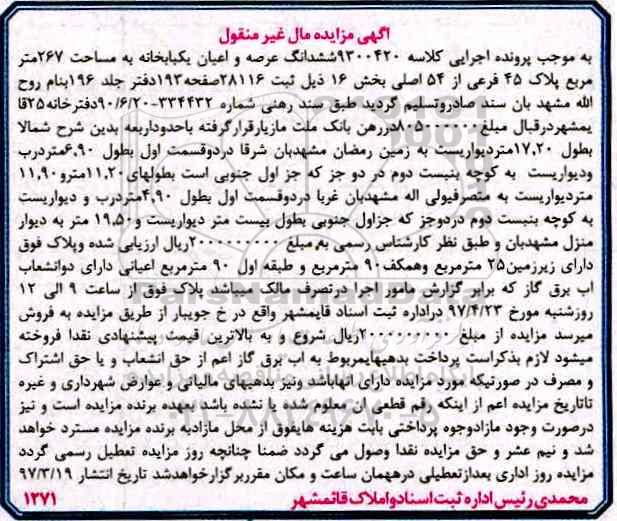 آگهی مزایده مال غیر منقول
به موجب پرونده اجرایی کلاسه ۹۳۰۰۴۲۰ششدانگ عرصه و اعیان یکبابخانه به مساحت ۲۶۷متر
مربع پلاک ۴۵ فرعی از ۵۴ اصلی بخش ۱۶ ذیل ثبت ۲۸۱۱۶صفحه۱۹۳دفتر جلد ۱۹۶بنام روح
الله مشهد بان سند صادروتسلیم گردید طبق سند رهنی شماره ۳۳۴۴۳۲-۹۰/۶/۲۰دفترخانه۲۵قا
یمشهردرقبال مبلغ۸۰۵۰۰۰۰۰۰دررهن بانک ملت مازیارقرارگرفته باحدوداربعه بدین شرح شمالا
بطول ۱۷,۲۰متردیواریست به زمین رمضان مشهدبان شرقا دردوقسمت اول بطول ۶,۹۰متردرب
ودیواریست به کوچه بنبست دوم در دو جز که جز اول جنوبی است بطولهای۱۱,۲۰مترو ۱۱,۹۰
متردیواریست به متصرفیولی اله مشهدبان غربا دردوقسمت اول بطول ۴,۹۰متردرب و دیواریست
به کوچه بنبست دوم دردوجز که جزاول جنوبی بطول بیست متر دیواریست و۱۹,۵۰ متر به دیوار
منزل مشهدبان و طبق نظر کارشناس رسمی به مبلغ ۲۰۰۰۰۰۰۰۰۰ریال ارزیابی شده وپلاک فوق
دارای زیرزمین۲۵ مترمربع وهمکف۹۰ مترمربع و طبقه اول ۹۰ مترمربع اعیانی دارای دوانشعاب
اب برق گاز که برابر گزارش مامور اجرا درتصرف مالک میباشد پلاک فوق از ساعت ۹ الی ۱۲
روزشنبه مورخ ۹۷/۴/۲۳ دراداره ثبت اسناد قایمشهر واقع در خ جویبار از طریق مزایده به فروش
میرسد مزایده از مبلغ ۲۰۰۰۰۰۰۰۰۰ریال شروع و به بالاترین قیمت پیشنهادی نقدا فروخته
میشود لازم بذکراست پرداخت بدهیهایمربوط به اب برق گاز اعم از حق انشعاب و یا حق اشتراک
و مصرف در صورتیکه مورد مزایده دارای انهاباشد ونیز بدهیهای مالیاتی و عوارض شهرداری و غیره
تاتاریخ مزایده اعم از اینکه رقم قطعی ان معلوم شده یا نشده باشد بعهده برنده مزایده است و نیز
درصورت وجود مازادوجوه پرداختی بابت هزینه هایفوق از محل مازادبه برنده مزایده مسترد خواهد
شد و نیم عشر و حق مزایده نقدا وصول می گردد ضمنا چنانچه روز مزایده تعطیل رسمی گردد
مزایده روز اداری بعدازتعطیلی درهمان ساعت و مکان مقرربرگزارخواهدشد تاریخ انتشار ۹۷/۳/۱۹
محمدی رئیس اداره ثبت اسناد و املاک قائمشهر ۱۲۷۱
ParsNamadData
۰۲۱-۸۸۳۴۹۶۷۰-۵